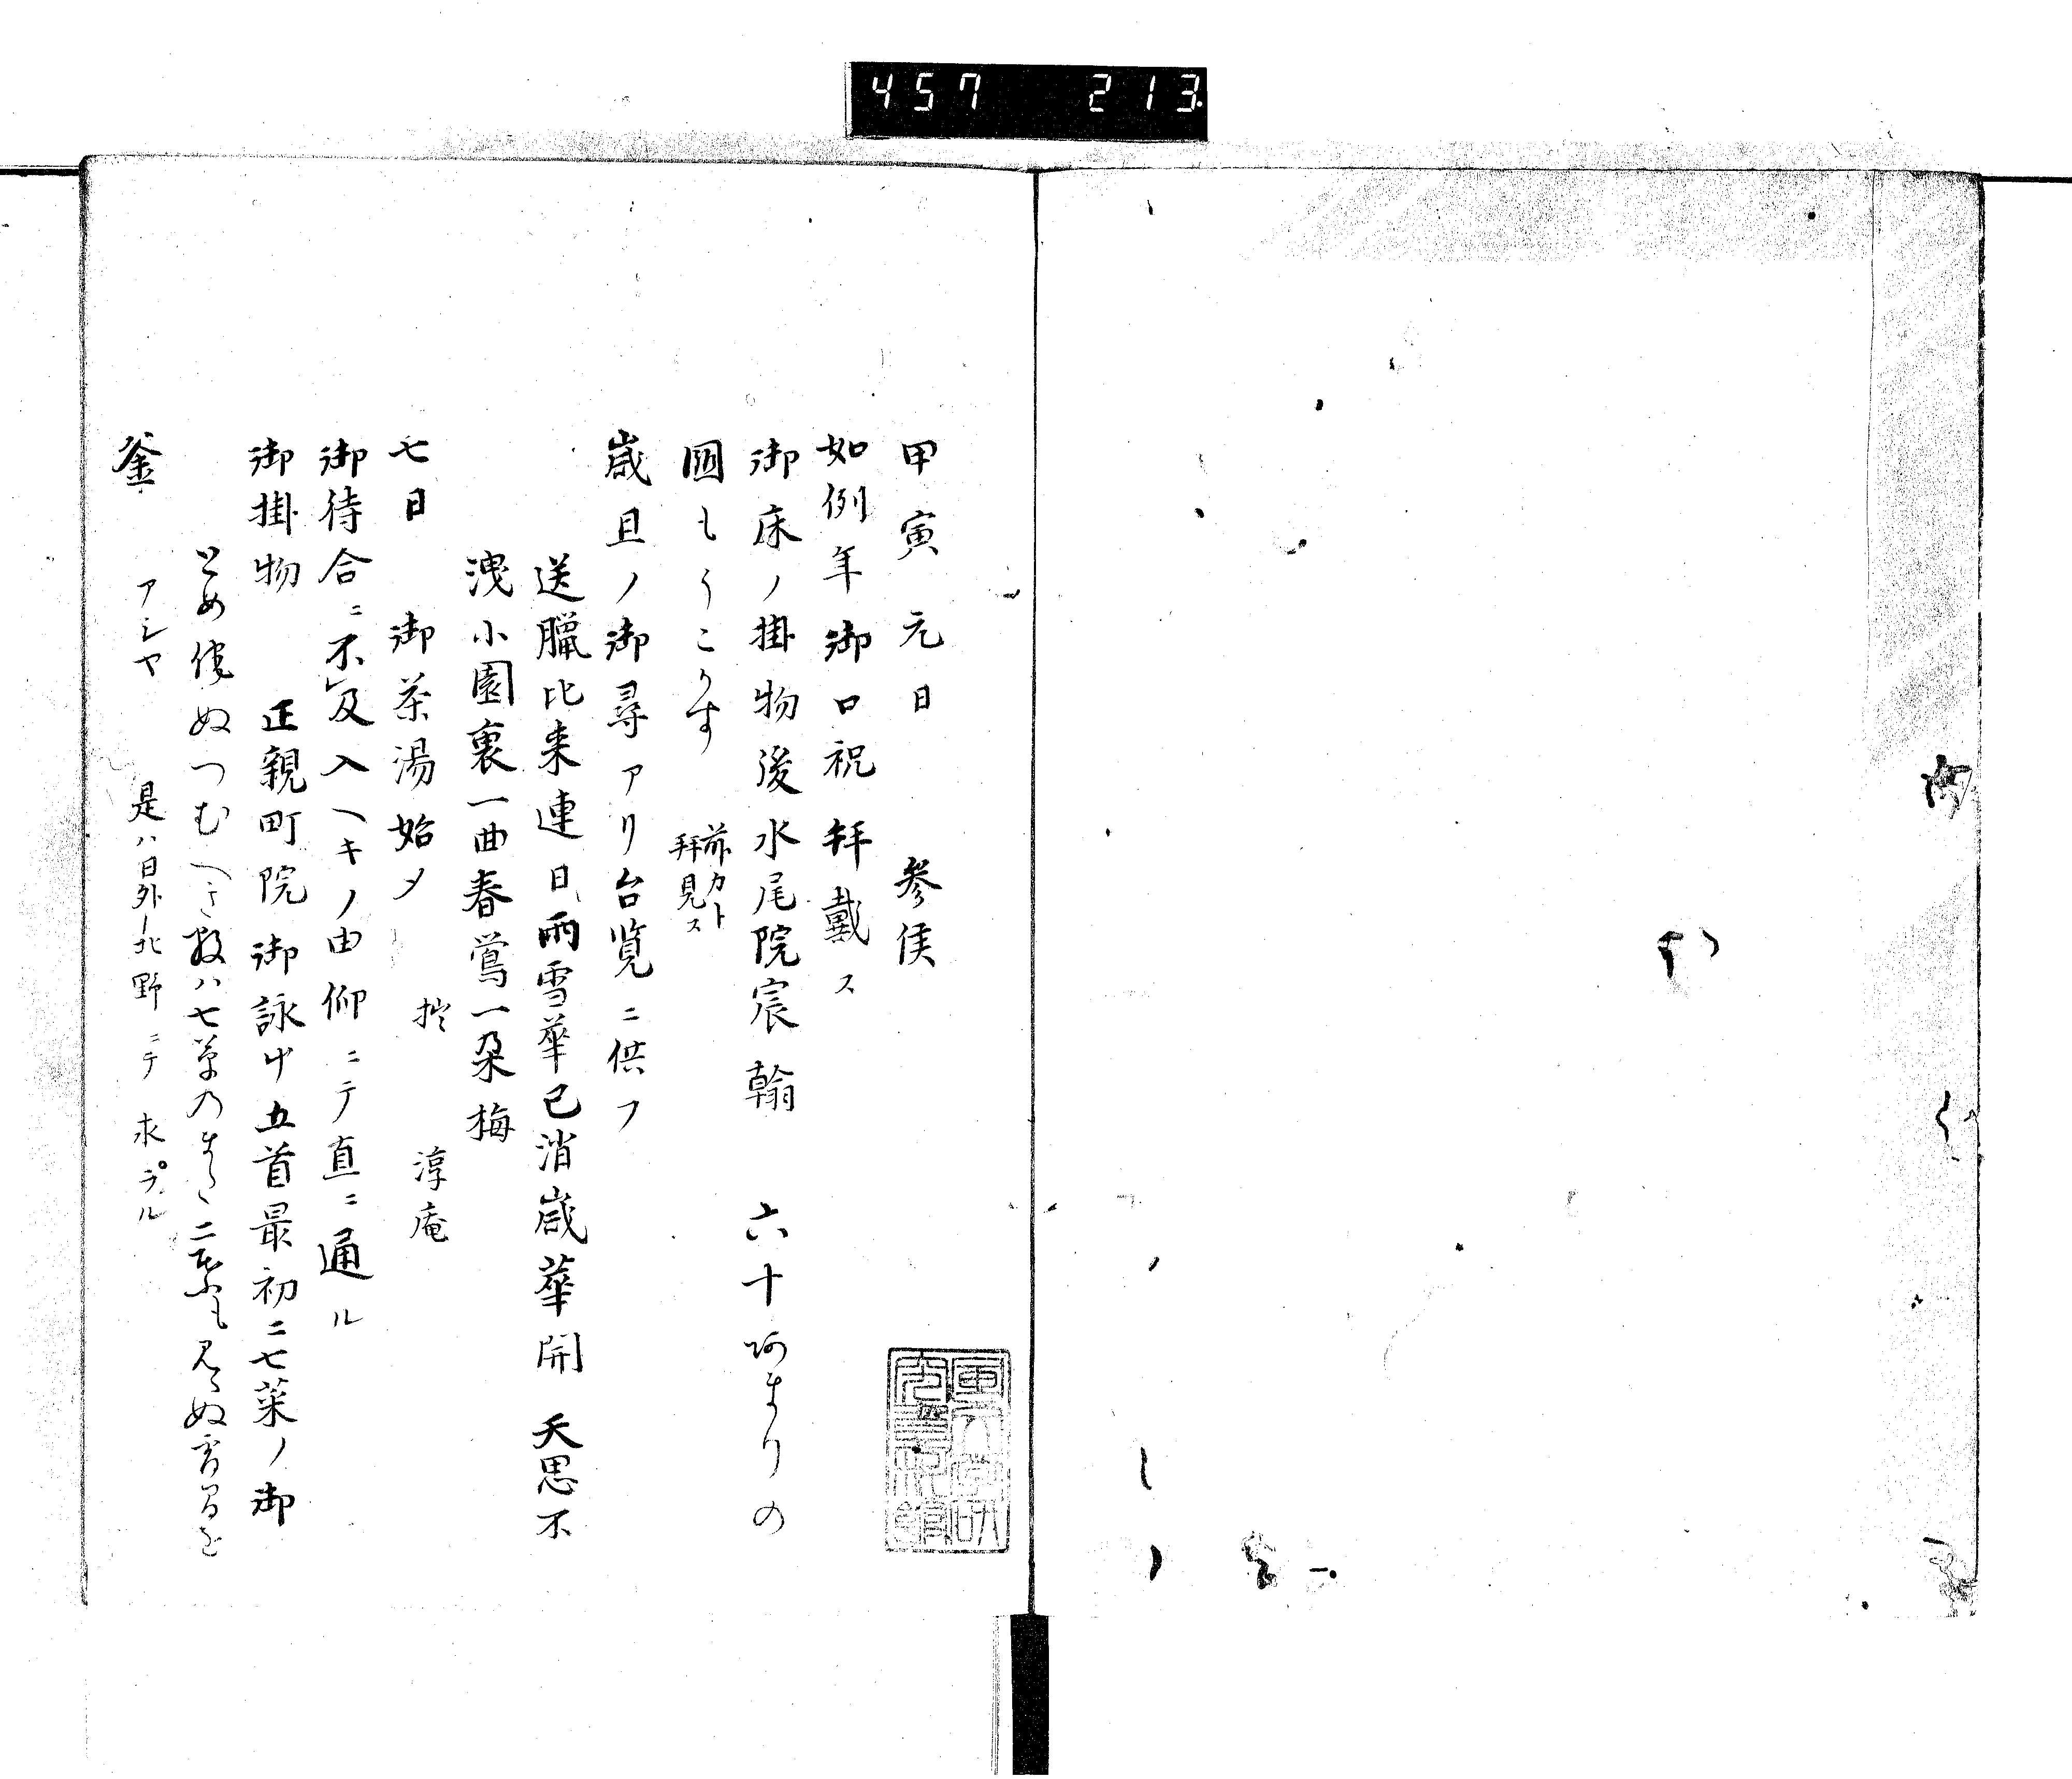 457 213
甲寅元日 參候
如例年御口祝拝戴ス
御床ノ掛物後水尾院宸翰 六十阿まりの
國もうこかす 前カト拝見ス
歳旦ノ御尋アリ台覧ニ供フ
送臘比来連日雨雪華已消歳華開 天思不
洩小園裏一曲春鶯一朶梅
七日 御茶湯始メ 拙 淳庵
御待合ニ不及入ヘキノ由仰ニテ直ニ通ル
御掛物 正親町院御詠廿五首最初ニ七菜ノ御
ぬつむへき数ハ七草の もえぬ雪間を
釜 アシヤ 是ハ日外北野ニテ求ラル